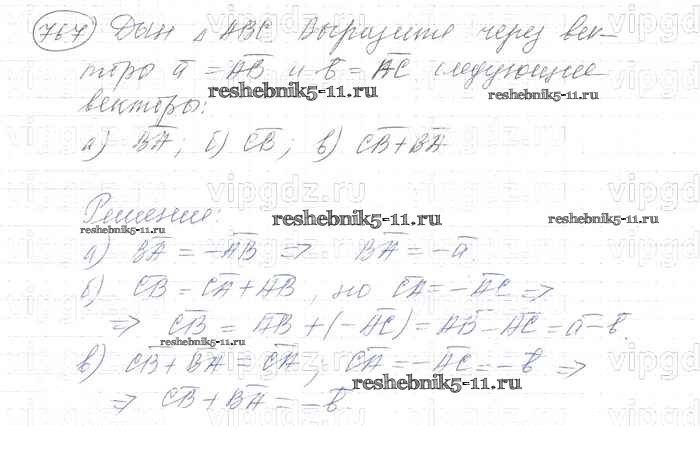 767) Дан △ ABC Выразите через век-
тора a̅ = A̅B̅ и b̅ = A̅C̅ следующее
reshebnik5-11.ru reshebnik5-11.ru
векторы:
а) B̅A̅; б) C̅B̅; в) C̅B̅+B̅A̅
vipgdz.ru
Решение:
reshebnik5-11.ru reshebnik5-11.ru reshebnik5-11.ru
а) B̅A̅ = -A̅B̅ => B̅A̅ = -a̅.
б) C̅B̅ = C̅A̅ + A̅B̅, но C̅A̅ = -A̅C̅ =>
=> C̅B̅ = A̅B̅ + (-A̅C̅) = A̅B̅ - A̅C̅ = a̅ - b̅.
reshebnik5-11.ru
в) C̅B̅ + B̅A̅ = C̅A̅, C̅A̅ = -A̅C̅ = -b̅ =>
reshebnik5-11.ru
=> C̅B̅ + B̅A̅ = -b̅.